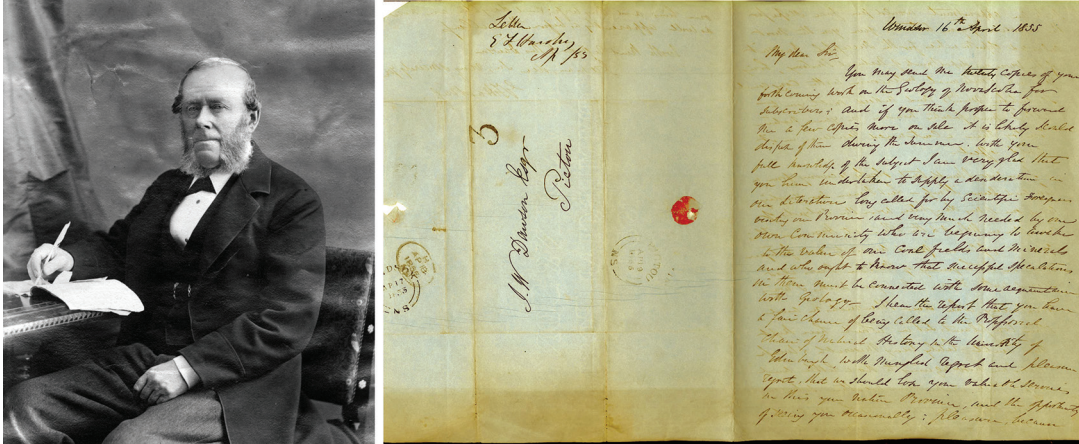 Letter
Ap /55
3
J. W. Dawson Esqr
Pictou
Windsor 16th April 1855
My dear Sir,
You may send me twenty copies of your
forthcoming work on the Geology of Nova Scotia for
Subscribers; and if you think proper to forward
me a few copies more on sale it is likely I could
dispose of them during the summer. With your
full knowledge of the subject I am very glad that
you have undertaken to supply a desideratum in
our Literature long called for by Scientific Foreigners
our Province and very much needed by our
own Community who are beginning to awake
to the value of our Coal fields and Minerals
and who ought to know that successful speculations
in them must be connected with some acquaintance
with Geology— I hear the report that you have
a fair chance of being called to the Proposed
Chair of Natural History in the University of
Edinburgh with mingled regret and pleasure
regret, that we should lose your valuable services
in this your native Province, and the opportunity
of seeing you occasionally; pleasure, because